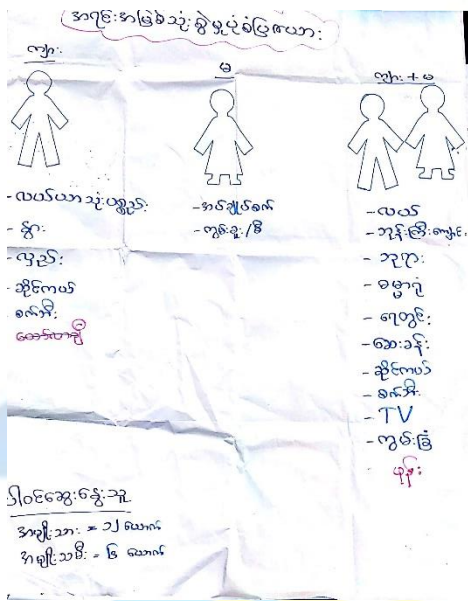 အရင်းအမြစ်သုံးစွဲမှုပုံစံပြဇယား
ကျား
- လယ်ယာသုံးပစ္စည်း
- နွား
- လှည်း
- ဆိုင်ကယ်
စက်ဘီး
မ
- အပ်ချုပ်စက်
ကျား + မ
- လယ်
- ဘုန်းကြီးကျောင်း
- ဘုရား
- ဓမ္မာရုံ
- ရေတွင်း
- ဆေးခန်း
- ဆိုင်ကယ်
- စက်ဘီး
- TV
- ကွမ်းခြံ
- ဖုန်း
ပါဝင်ဆွေးနွေးသူ
အမျိုးသား = ၁၂ ယောက်
အမျိုးသမီး = ၆ ယောက်